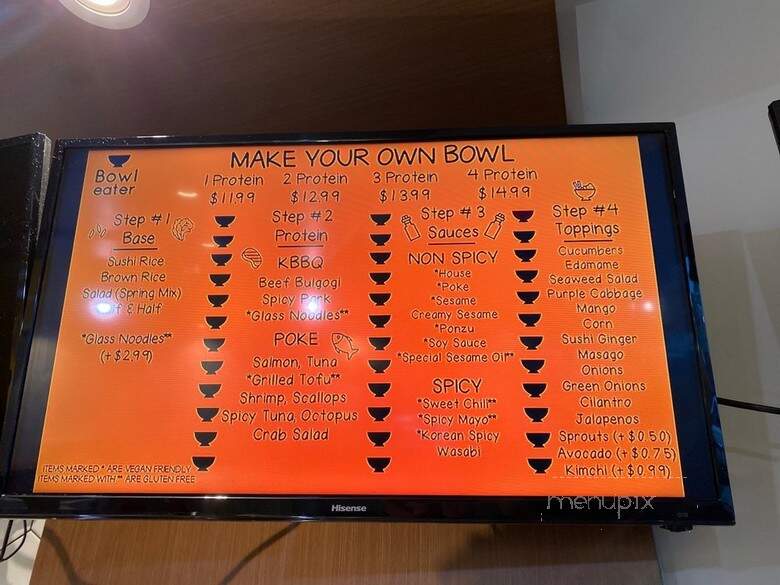 Bowl
eater
MAKE YOUR OWN BOWL
1 Protein 2 Protein 3 Protein 4 Protein
$11.99 $12.99 $13.99 $14.99
Step #1
Base
Sushi Rice
Brown Rice
Salad (Spring Mix)
& Half
*Glass Noodles**
(+$2.99)
Step #2
Protein
KBBQ
Beef Bulgogi
Spicy Pork
*Glass Noodles**
POKE
Salmon, Tuna
*Grilled Tofu**
Shrimp, Scallops
Spicy Tuna, Octopus
Crab Salad
Step #3
Sauces
NON SPICY
*House
*Poke
*Sesame
Creamy Sesame
*Ponzu
*Soy Sauce
*Special Sesame Oil**
SPICY
*Sweet Chili**
*Spicy Mayo**
*Korean Spicy
Wasabi
Step #4
Toppings
Cucumbers
Edamame
Seaweed Salad
Purple Cabbage
Mango
Corn
Sushi Ginger
Masago
Onions
Green Onions
Cilantro
Jalapenos
Sprouts (+$0.50)
Avocado (+$0.75)
Kimchi (+$0.99)
ITEMS MARKED * ARE VEGAN FRIENDLY
ITEMS MARKED WITH ** ARE GLUTEN FREE
Hisense
menupix